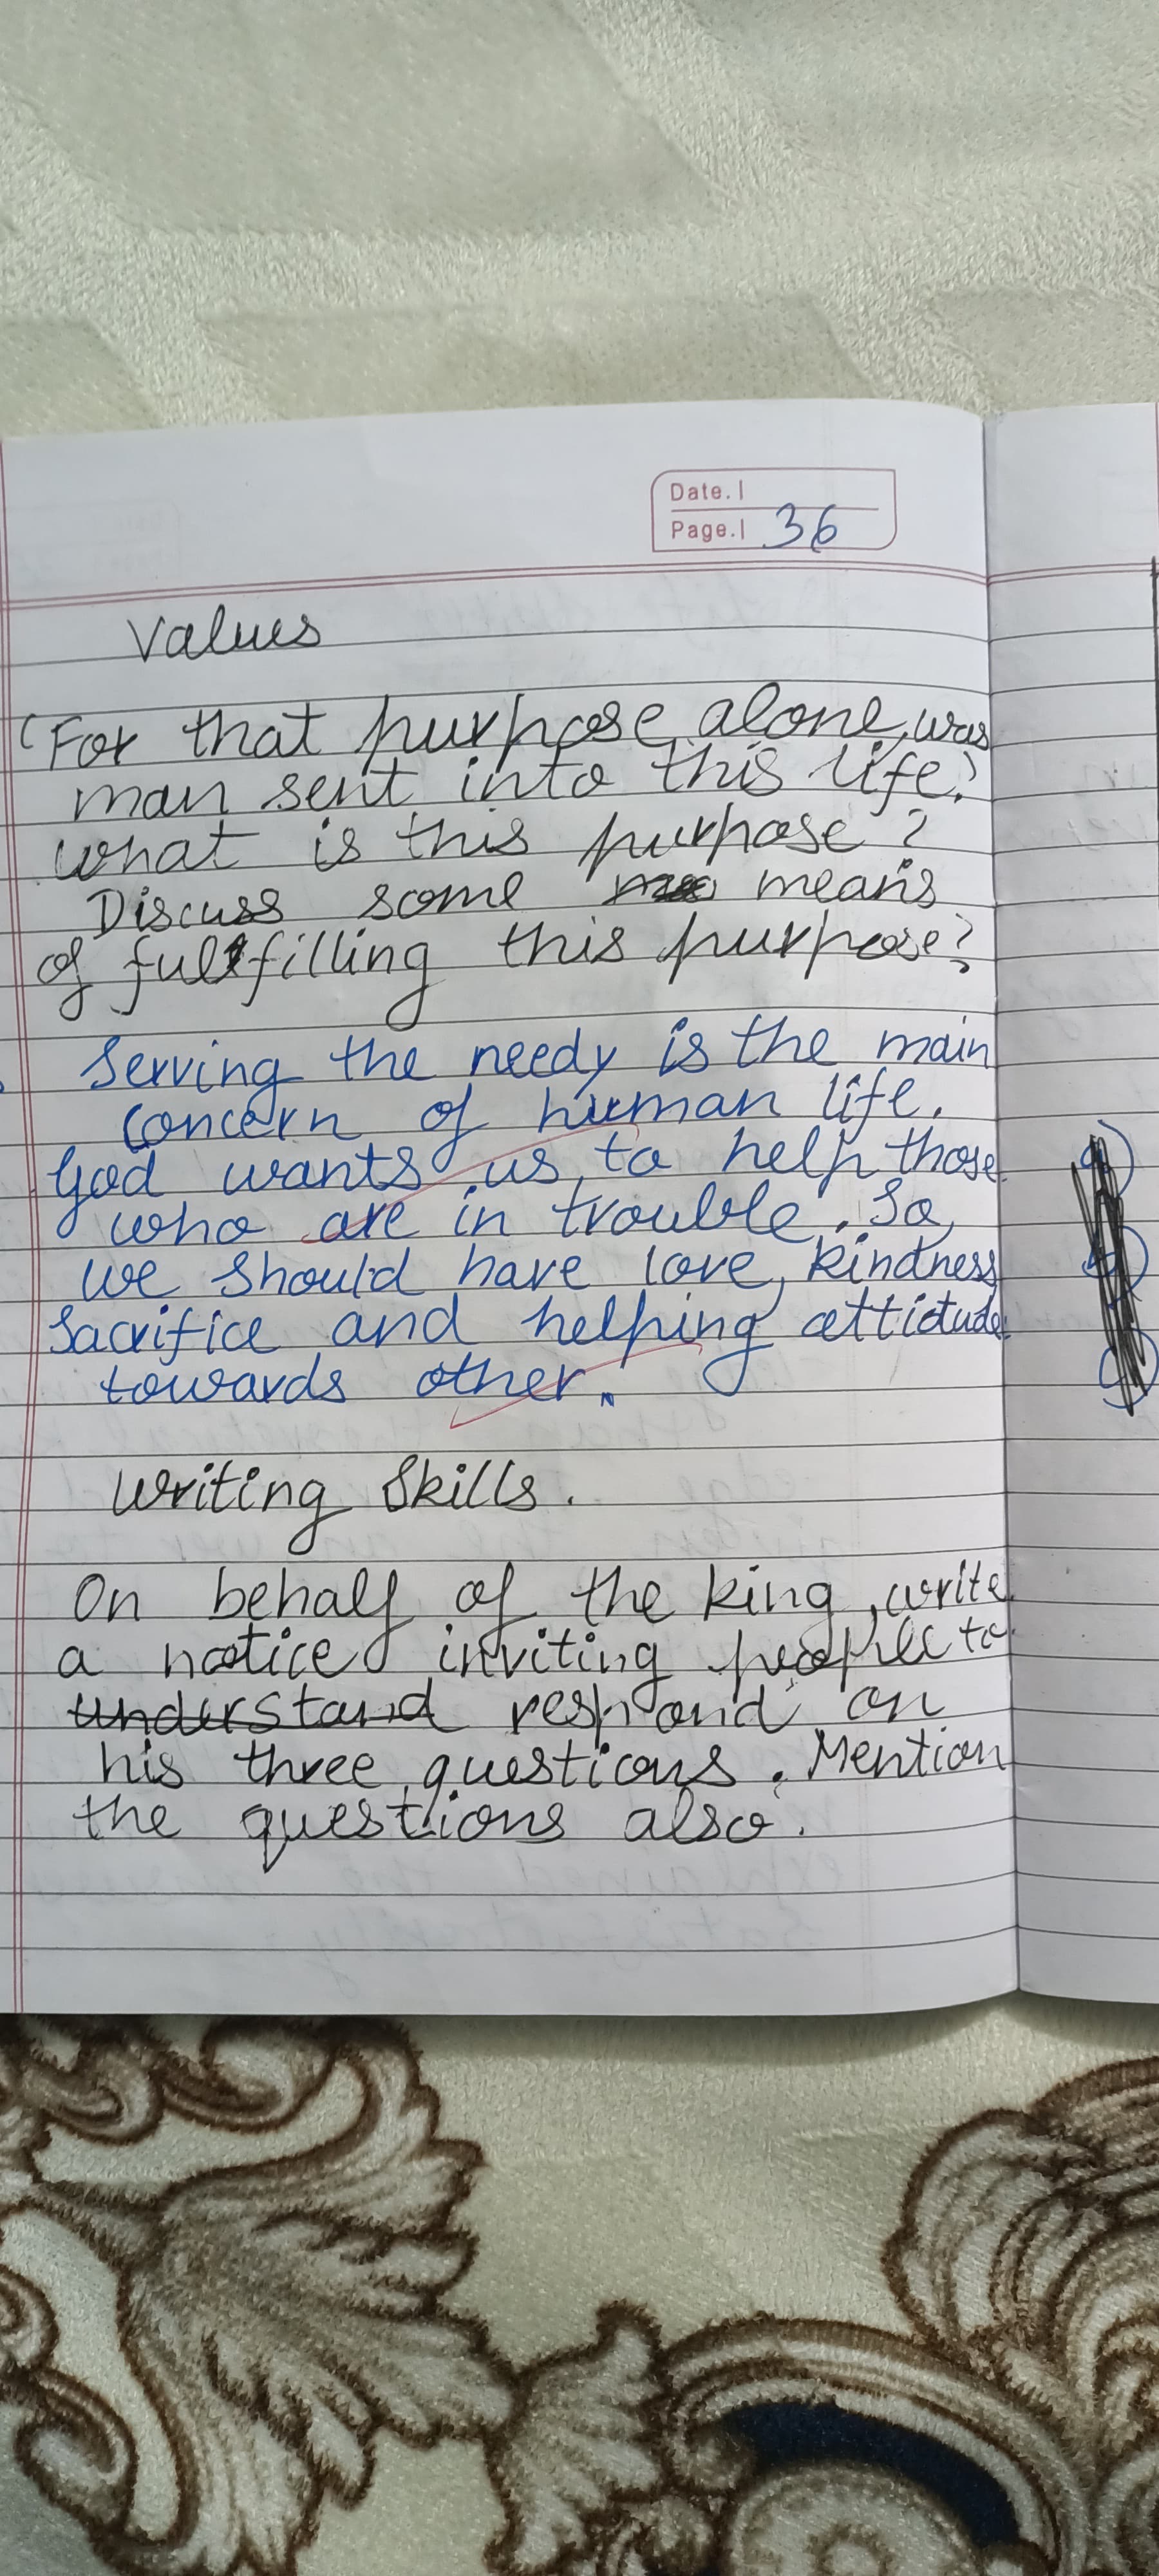 Date.
Page. 36
Values
(For that purpose alone, was
man sent into this life?
What is this purpose?
Discuss some means
of fullfilling this purpose?
Serving the needy is the main
concern of human life.
God wants us to help those
who are in trouble. So,
we should have love, kindness
sacrifice and helping attictude
towards other.
Writing Skills.
On behalf of the king, write
a notice inviting people to
understand respond on
his three questions. Mention
the questions also.